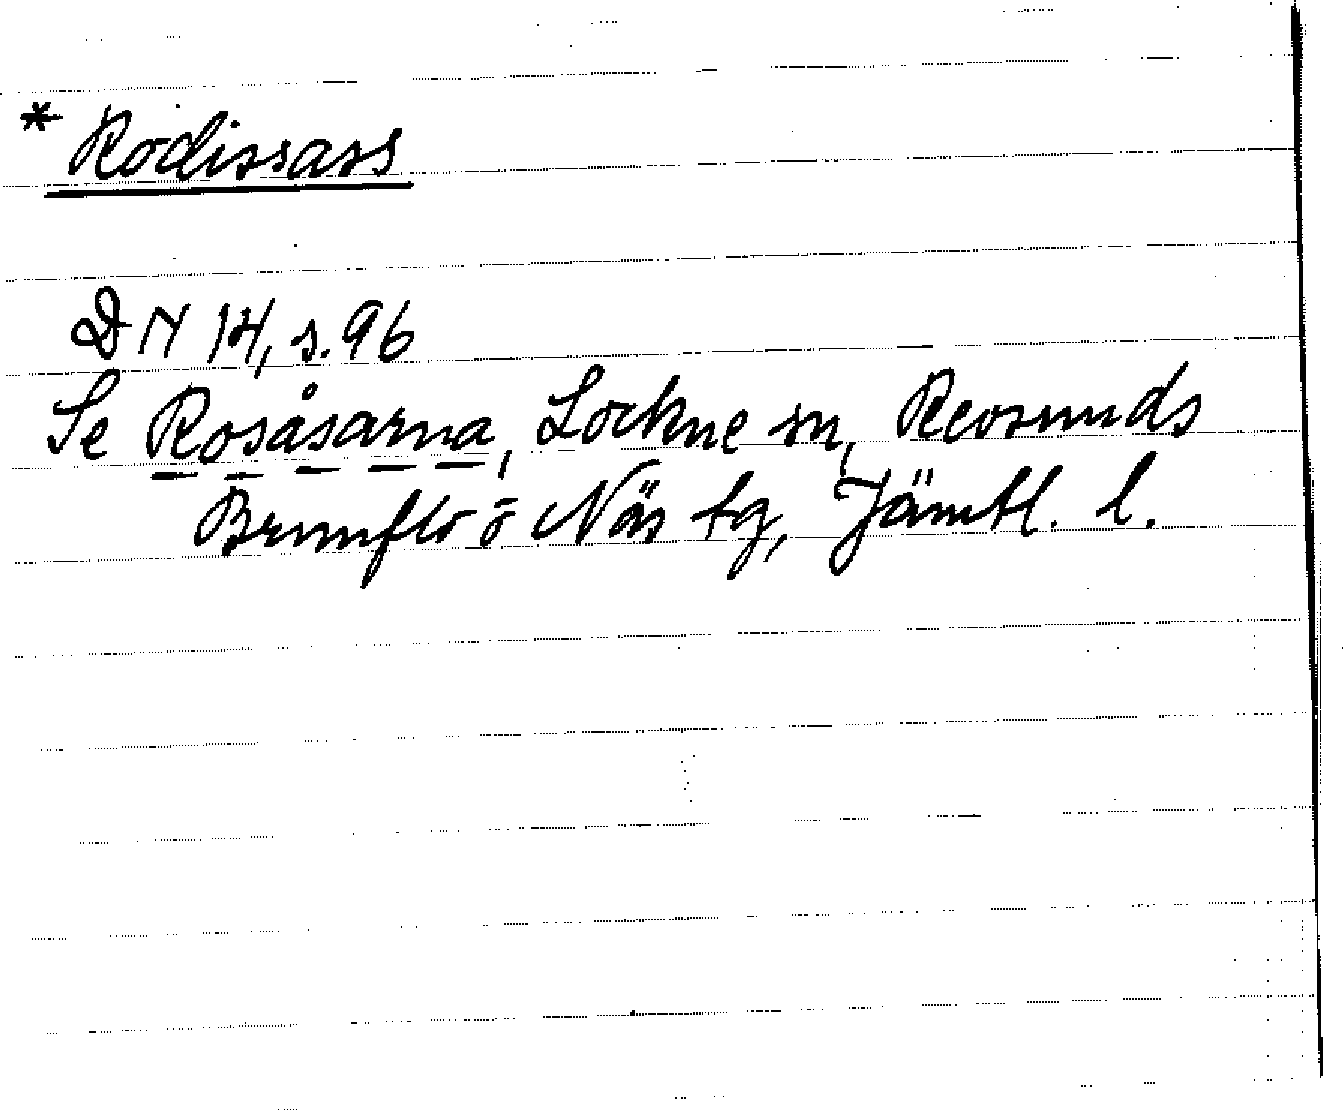 * Rodissass
DN 14, s. 96
Se Rosåsarna, Lockne sn, Revsunds
Brunflo o Näs tg, Jämtl. l.